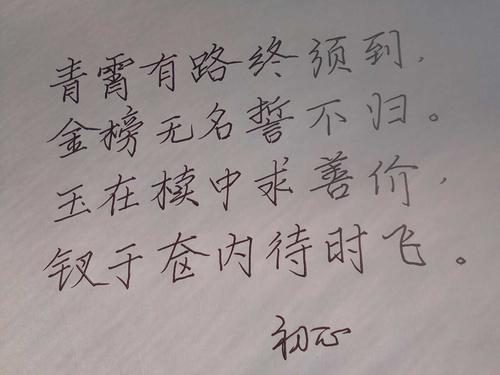 青霄有路终须到,
金榜无名誓不归。
玉在椟中求善价,
钗于奁内待时飞。
初心